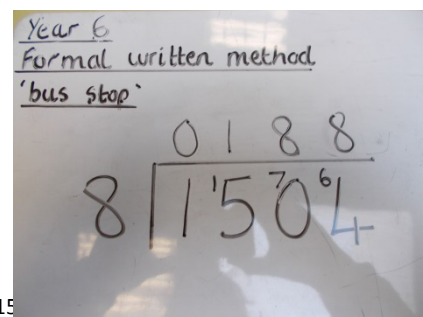 Year 6
Formal written method
'bus stop'
0 1 8 8
8 1 ¹5 ⁷0 ⁶4
15